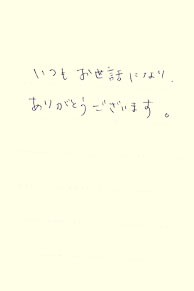 いつもお世話になり、
ありがとうございます。